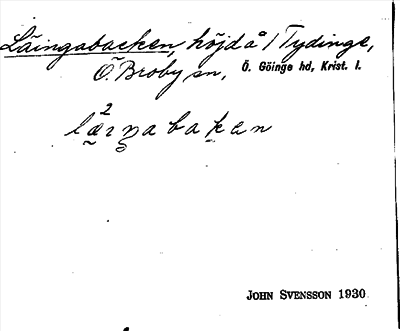 Läingabacken, höjd å 1 Tydinge,
Ö. Broby sn, Ö. Göinge hd, Krist. l.
JOHN SVENSSON 1930